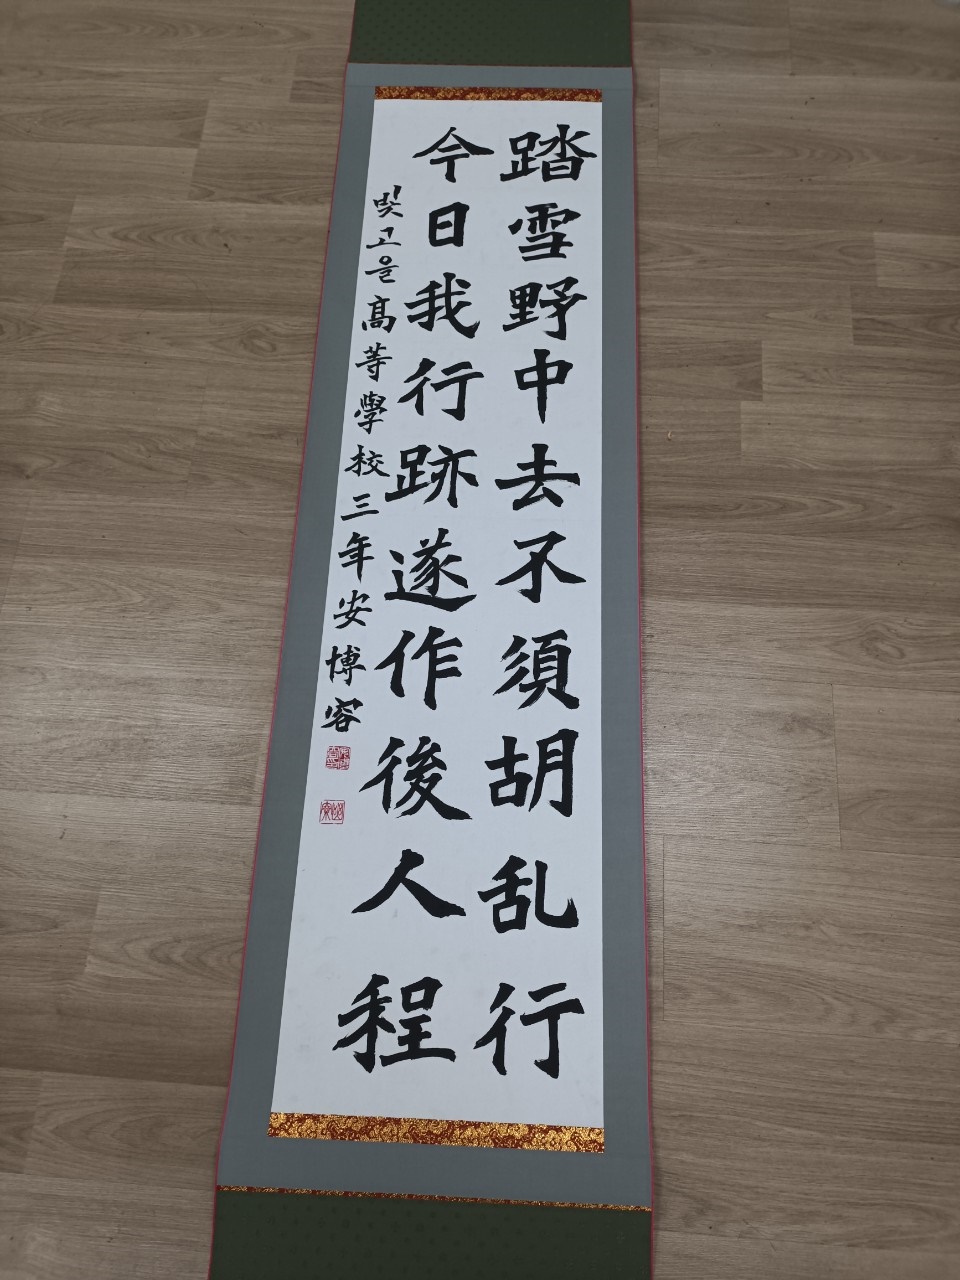 踏雪野中去不須胡乱行
今日我行跡遂作後人程
빛고을高等學校三年安博容